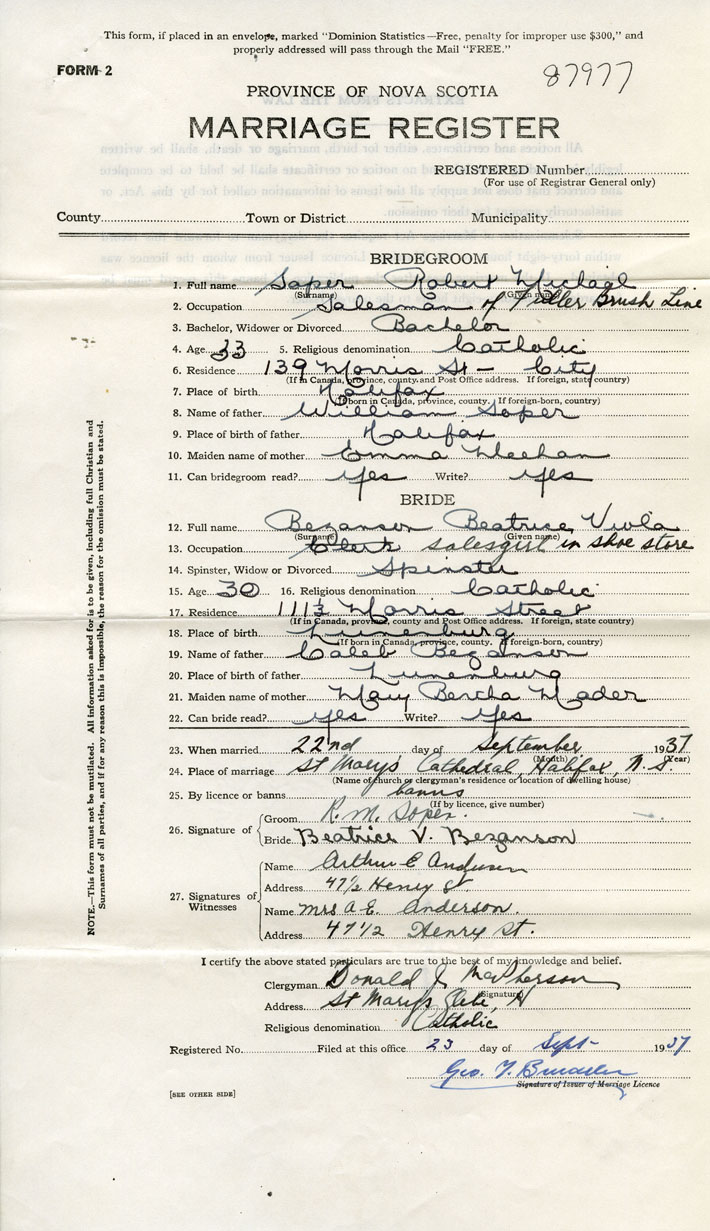 This form, if placed in an envelope, marked "Dominion Statistics—Free, penalty for improper use $300," and
properly addressed will pass through the Mail "FREE."
FORM 2
87977
PROVINCE OF NOVA SCOTIA
MARRIAGE REGISTER
REGISTERED Number
(For use of Registrar General only)
County Town or District Municipality
BRIDEGROOM
1. Full name Soper Robert Michael
(Surname) (Given name)
2. Occupation Salesman of Fuller Brush Line
3. Bachelor, Widower or Divorced Bachelor
4. Age 33 5. Religious denomination Catholic
6. Residence 139 Morris St - City
(If in Canada, province, county and Post Office address. If foreign, state country)
7. Place of birth Halifax
(If born in Canada, province, county. If foreign-born, country)
8. Name of father William Soper
9. Place of birth of father Halifax
10. Maiden name of mother Emma Meehan
11. Can bridegroom read? Yes Write? Yes
BRIDE
12. Full name Bezanson Beatrice Viola
(Surname) (Given name)
13. Occupation Clerk salesgirl in shoe store
14. Spinster, Widow or Divorced Spinster
15. Age 30 16. Religious denomination Catholic
17. Residence 111½ Morris Street
(If in Canada, province, county and Post Office address. If foreign, state country)
18. Place of birth Lunenburg
(If born in Canada, province, county. If foreign-born, country)
19. Name of father Caleb Bezanson
20. Place of birth of father Lunenburg
21. Maiden name of mother Mary Bertha Mader
22. Can bride read? Yes Write? Yes
23. When married 22nd day of September 1937
(Month) (Year)
24. Place of marriage St Mary's Cathedral, Halifax, N.S.
(Name of church or clergyman's residence or location of dwelling house)
25. By licence or banns banns
(If by licence, give number)
26. Signature of
Groom R. M. Soper.
Bride Beatrice V. Bezanson
27. Signatures of Witnesses
Name Arthur E Anderson
Address 47½ Henry St.
Name Mrs A.E. Anderson.
Address 47 1/2 Henry St.
I certify the above stated particulars are true to the best of my knowledge and belief.
Clergyman Donald J. MacPherson
(Signature)
Address St Mary's Glebe, H
Religious denomination Catholic
Registered No. Filed at this office 23 day of Sept- 1937
Geo. T.
Signature of Issuer of Marriage Licence
[SEE OTHER SIDE]
NOTE.—This form must not be mutilated. All information asked for is to be given, including full Christian and
Surnames of all parties, and if for any reason this is impossible, the reason for the omission must be stated.